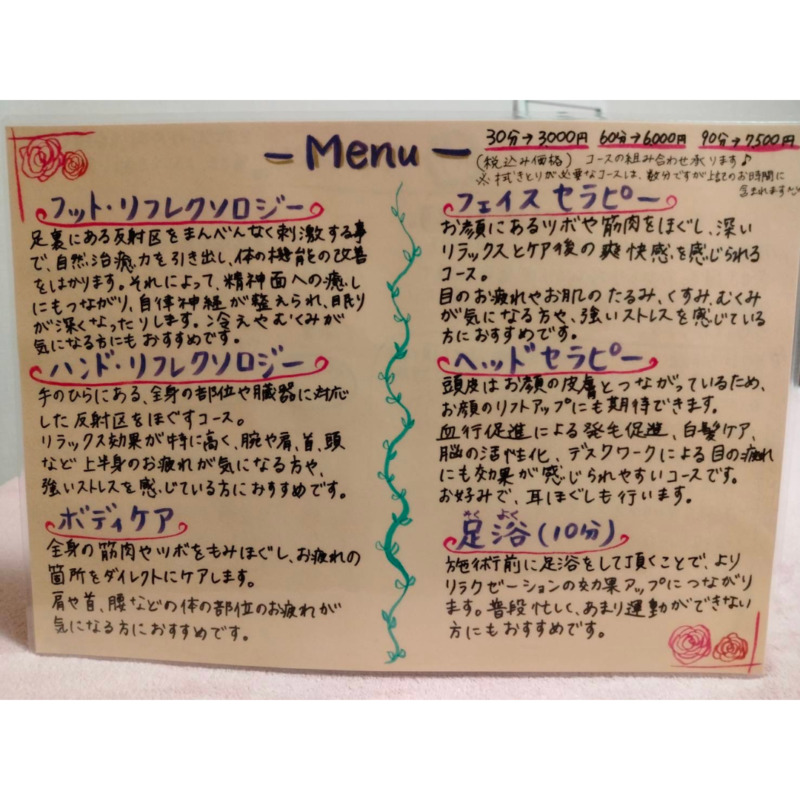 ーMenuー
30分→3000円 60分→6000円 90分→7500円
(税込み価格) コースの組み合わせ承ります♪
※拭きとりが必要なコースは、数分ですが上記のお時間に
含まれます
フット・リフレクソロジー
足裏にある反射区をまんべんなく刺激する事
で、自然治癒力を引き出し、体の機能の改善
をはかります。それによって、精神面への癒し
にもつながり、自律神経が整えられ、眠り
が深くなったりします。冷えやむくみが
気になる方にもおすすめです。
ハンド・リフレクソロジー
手のひらにある、全身の部位や臓器に対応
した反射区をほぐすコース。
リラックス効果が特に高く、腕や肩、首、頭
など上半身のお疲れが気になる方や、
強いストレスを感じている方におすすめです。
ボディケア
全身の筋肉やツボをもみほぐし、お疲れの
箇所をダイレクトにケアします。
肩や首、腰などの体の部位のお疲れが
気になる方におすすめです。
フェイスセラピー
お顔にあるツボや筋肉をほぐし、深い
リラックスとケア後の爽快感を感じられる
コース。
目のお疲れやお肌のたるみ、くすみ、むくみ
が気になる方や、強いストレスを感じている
方におすすめです。
ヘッドセラピー
頭皮はお顔の皮膚とつながっているため、
お顔のリフトアップにも期待できます。
血行促進による発毛促進、白髪ケア、
脳の活性化、デスクワークによる目の疲れ
にも効果が感じられやすいコースです。
お好みで、耳ほぐしも行います。
そく よく
足浴(10分)
施術前に足浴をして頂くことで、より
リラクゼーションの効果アップにつながり
ます。普段忙しく、あまり運動ができない
方にもおすすめです。